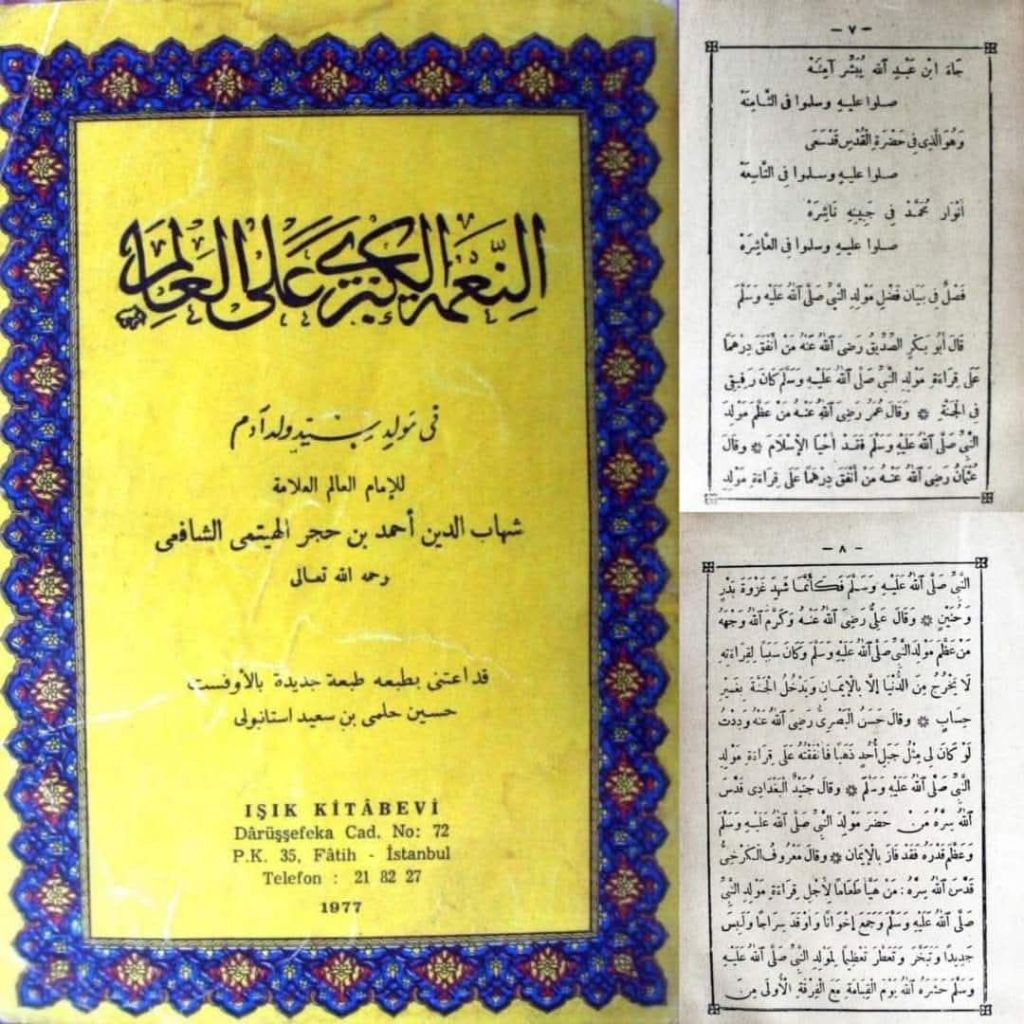 النِّعمة الكبرى عَلَى العالم
في مَولِد سيّد ولد آدم
للإمام العالم العلامة
شهاب الدين أحمد بن حجر الهيتمي الشافعي
رحمه الله تعالى
قد اعتنى بطبعه طبعة جديدة بالأوفست
حسين حلمى بن سعيد استانبولى
IŞIK KİTÂBEVİ
Dârüşşefeka Cad. No: 72
P.K. 35, Fâtih - İstanbul
Telefon : 21 82 27
1977
— ٧ —
جَاءَ ابْن عَبْدِ اَلله يُبَشِّر آمِنَهْ
صلوا عليهِ وسلموا فى الثَّامِنَهْ
وَهُوَ الَّذِى فِى حَضْرَةِ الْقُدْسِ قَدْسَعَى
صلوا عليهِ وسلموا فى التَّاسِعَهْ
اَنْوَار مُحَمَّدْ فِى جَبِينِهِ نَاشِرَهْ
صلوا عليهِ وسلموا فى العَاشِرَهْ
فَصْلٌ فِى بَيَانِ فَضْلِ مَوْلِدِ النَّبِىِّ صَلَّى اَللهُ عَلَيْهِ وَسَلَّمَ
قَالَ أَبُو بَكْرٍ الصِّدِّيقُ رَضِىَ اَللهُ عَنْهُ مَنْ اَنْفَقَ دِرْهَمًا
عَلَى قِرَاءَةِ مَوْلِدِ النَّبِىِّ صَلَّى اَللهُ عَلَيْهِ وَسَلَّمَ كَانَ رَفِيقِى
فِى الْجَنَّةِ ۞ وَقَالَ عُمَرُ رَضِىَ اَللهُ عَنْهُ مَنْ عَظَّمَ مَوْلِدَ
النَّبِىِّ صَلَّى اَللهُ عَلَيْهِ وَسَلَّمَ فَقَدْ اَحْيَا الْإِسْلَامَ ۞ وَقَالَ
عُثْمَانُ رَضِىَ اَللهُ عَنْهُ مَنْ اَنْفَقَ دِرْهَمًا عَلَى قِرَاءَةِ مَوْلِدِ
— ٨ —
النَّبِىِّ صَلَّى اَللهُ عَلَيْهِ وَسَلَّمَ فَكَأَنَّمَا شَهِدَ غَزْوَةَ بَدْرٍ
وَحُنَيْنٍ ۞ وَقَالَ عَلِىٌّ رَضِىَ اَللهُ عَنْهُ وَكَرَّمَ اَللهُ وَجْهَهُ
مَنْ عَظَّمَ مَوْلِدَ النَّبِىِّ صَلَّى اَللهُ عَلَيْهِ وَسَلَّمَ وَكَانَ سَبَبًا لِقِرَاءَتِهِ
لَا يَخْرُجُ مِنَ الدُّنْيَا اِلَّا بِالْإِيمَانِ وَيَدْخُلُ الْجَنَّةَ بِغَيْرِ
حِسَابٍ ۞ وَقَالَ حَسَنٌ الْبَصْرِىُّ رَضِىَ اَللهُ عَنْهُ وَدِدْتُ
لَوْ كَانَ لِى مِثْلُ جَبَلِ أُحُدٍ ذَهَبًا فَاَنْفَقْتُهُ عَلَى قِرَاءَةِ مَوْلِدِ
النَّبِىِّ صَلَّى اَللهُ عَلَيْهِ وَسَلَّمَ ۞ وَقَالَ جُنَيْدٌ الْبَغْدَادِى قَدَّسَ
اَللهُ سِرَّهُ مَنْ حَضَرَ مَوْلِدَ النَّبِىِّ صَلَّى اَللهُ عَلَيْهِ وَسَلَّمَ
وَعَظَّمَ قَدْرَهُ فَقَدْ فَازَ بِالْإِيمَانِ ۞ وَقَالَ مَعْرُوفٌ الْكَرْخِىُّ
قَدَّسَ اَللهُ سِرَّهُ : مَنْ هَيَّأَ طَعَامًا لِأَجْلِ قِرَاءَةِ مَوْلِدِ النَّبِىِّ
صَلَّى اَللهُ عَلَيْهِ وَسَلَّمَ وَجَمَعَ اِخْوَانًا وَاَوْقَدَ سِرَاجًا وَلَبِسَ
جَدِيدًا وَتَبَخَّرَ وَتَعَطَّرَ تَعْظِيمًا لِمَوْلِدِ النَّبِىِّ صَلَّى اَللهُ عَلَيْهِ
وَسَلَّمَ حَشَرَهُ اَللهُ يَوْمَ الْقِيَامَةِ مَعَ الْفِرْقَةِ الْأُولَى مِنَ